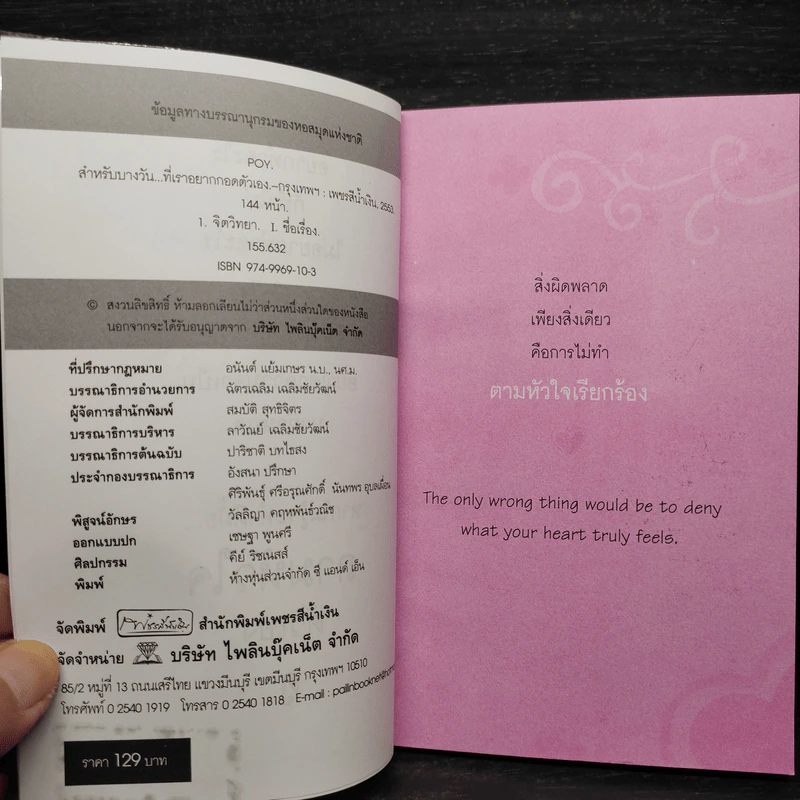 ข้อมูลทางบรรณานุกรมของหอสมุดแห่งชาติ
POY.
สำหรับบางวัน...ที่เราอยากกอดตัวเอง.–กรุงเทพฯ : เพชรสีน้ำเงิน, 2550.
144 หน้า.
1. จิตวิทยา. I. ชื่อเรื่อง.
155.632
ISBN 974-9969-10-3
© สงวนลิขสิทธิ์ ห้ามลอกเลียนไม่ว่าส่วนหนึ่งส่วนใดของหนังสือ
นอกจากจะได้รับอนุญาตจาก บริษัท ไพลินบุ๊คเน็ต จำกัด
ที่ปรึกษากฎหมาย อนันต์ แย้มเกษร น.บ., นศ.ม.
บรรณาธิการอำนวยการ ฉัตรเฉลิม เฉลิมชัยวัฒน์
ผู้จัดการสำนักพิมพ์ สมบัติ สุทธิจิตร
บรรณาธิการบริหาร ลาวัณย์ เฉลิมชัยวัฒน์
บรรณาธิการต้นฉบับ ปาริชาติ บทไธสง
ประจำกองบรรณาธิการ อังสนา ปรึกษา
ศิริพันธุ์ ศรีอรุณศักดิ์ นันทพร อุบลเผื่อน
พิสูจน์อักษร วัลลิญา คฤหพันธ์วณิช
ออกแบบปก เชษฐา พูนศรี
ศิลปกรรม คีย์ ริชเนสส์
พิมพ์ ห้างหุ้นส่วนจำกัด ซี แอนด์ เอ็น
จัดพิมพ์ เพชรสีน้ำเงิน สำนักพิมพ์เพชรสีน้ำเงิน
จัดจำหน่าย บริษัท ไพลินบุ๊คเน็ต จำกัด
85/2 หมู่ที่ 13 ถนนเสรีไทย แขวงมีนบุรี เขตมีนบุรี กรุงเทพฯ 10510
โทรศัพท์ 0 2540 1919 โทรสาร 0 2540 1818 E-mail :
ราคา 129 บาท
สิ่งผิดพลาด
เพียงสิ่งเดียว
คือการไม่ทำ
ตามหัวใจเรียกร้อง
The only wrong thing would be to deny
what your heart truly feels.